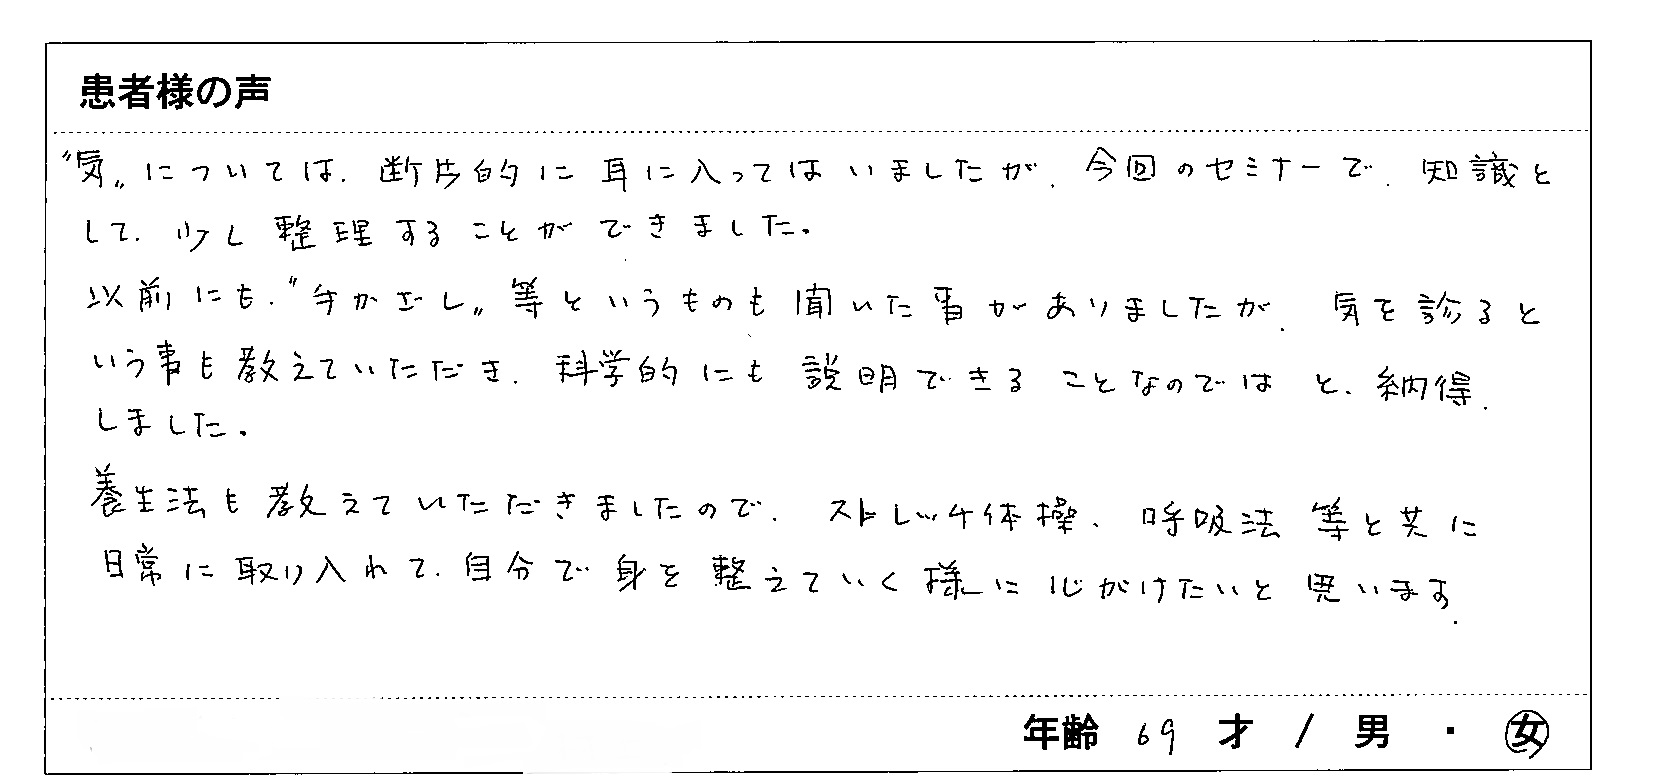 患者様の声
"気„については、断片的に耳に入ってはいましたが、今回のセミナーで、知識と
して、少し整理することができました。
以前にも、"手かざし„等というものも聞いた事がありましたが、気を診ると
いう事も教えていただき、科学的にも説明できることなのではと、納得
しました。
養生法も教えていただきましたので、ストレッチ体操、呼吸法等と共に
日常に取り入れて、自分で身を整えていく様に心がけたいと思います。
年齢 69 才 / 男 ・ 女